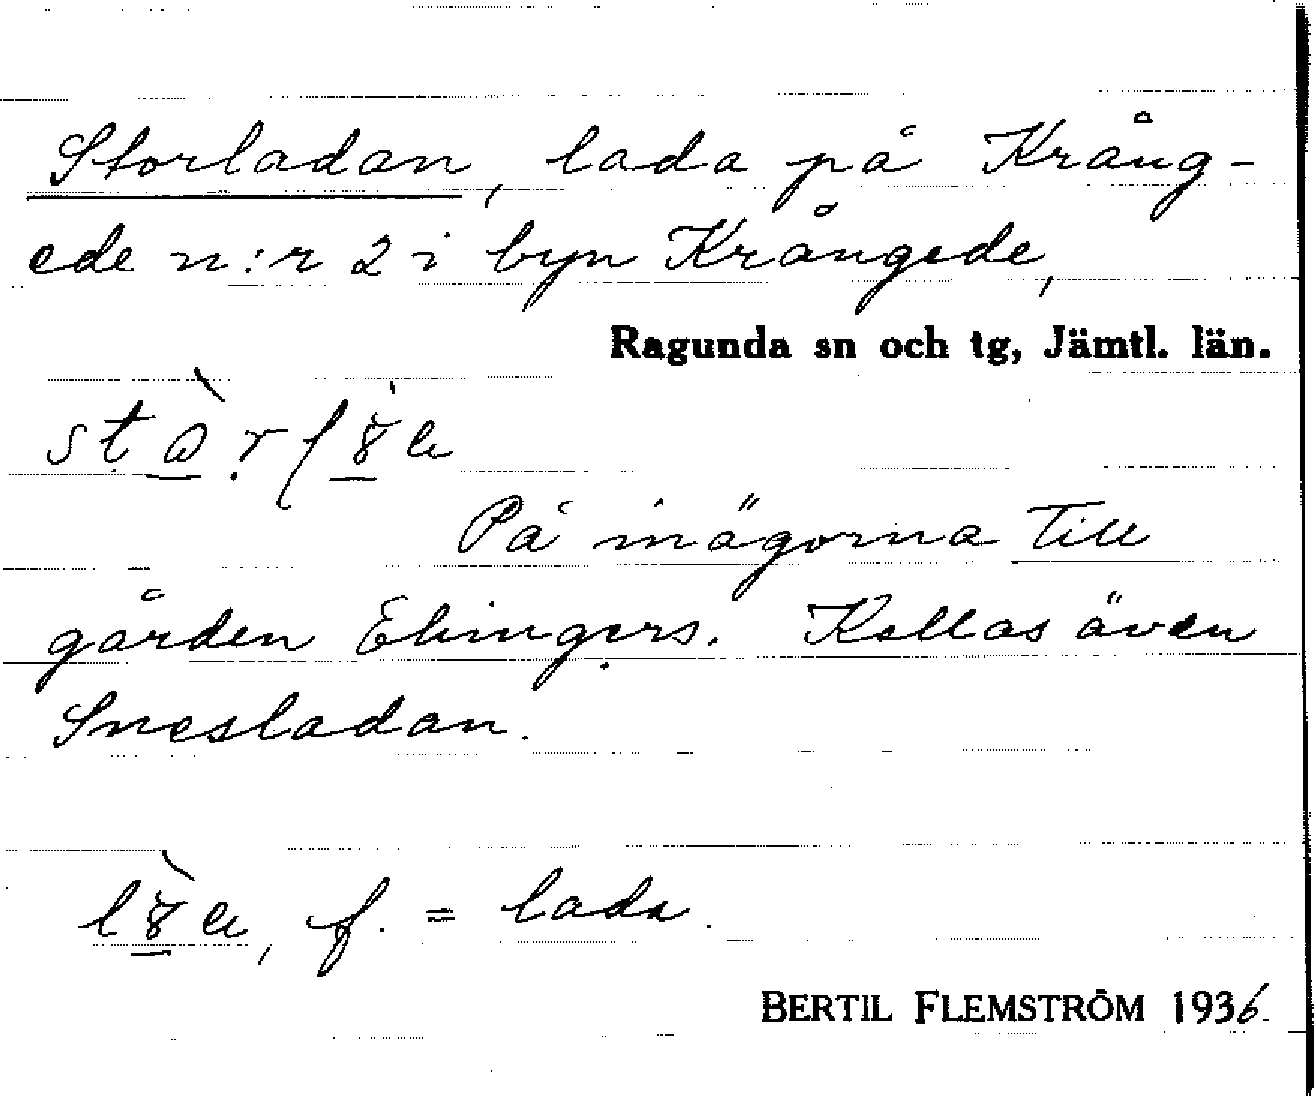 Storladan, lada på Krång-
ede n:r 2 i byn Krångede,
Ragunda sn och tg, Jämtl. län.
På inägorna till
gården Ehingers. Kallas även
Snesladan.
f. = lada.
BERTIL FLEMSTRÖM 1936